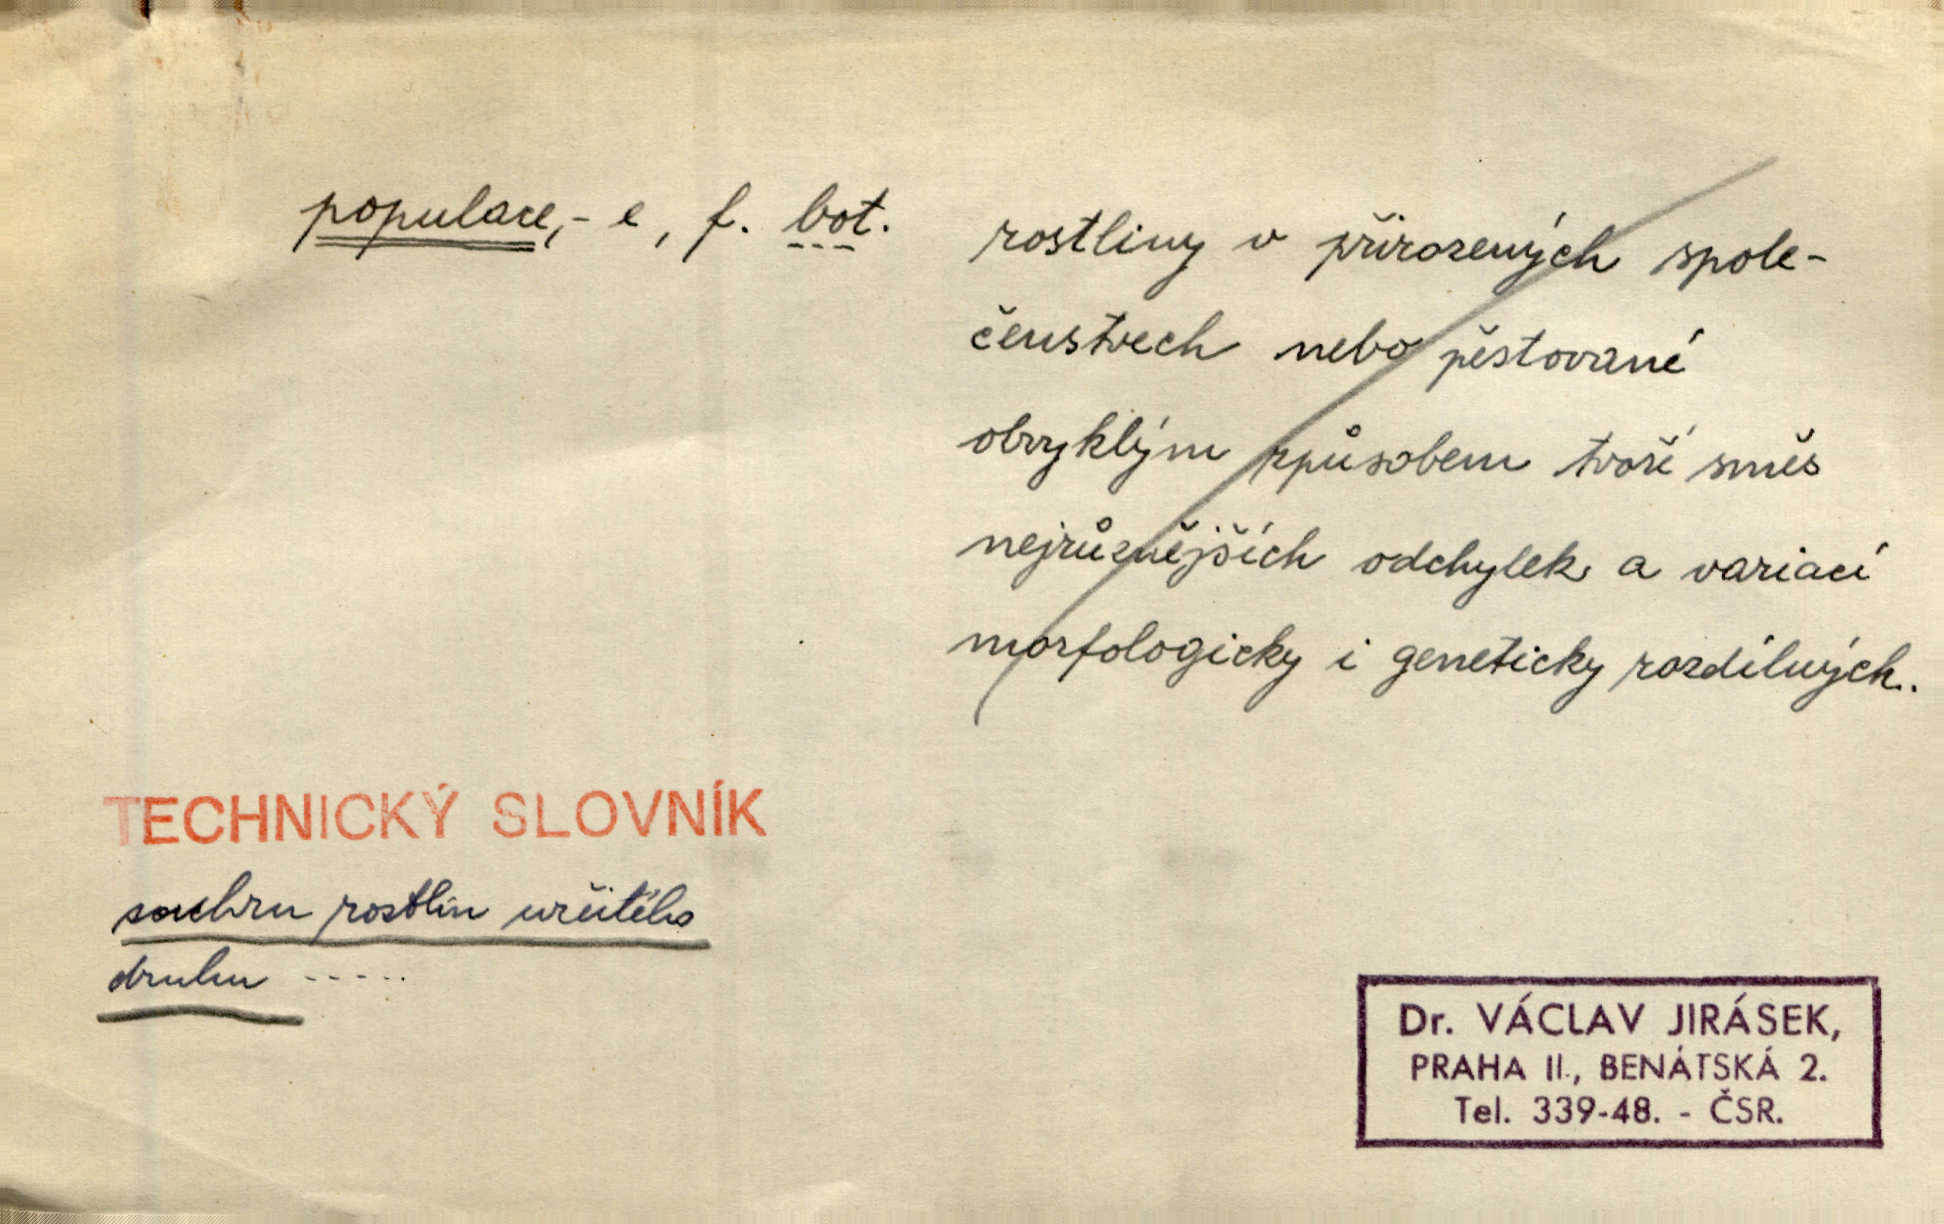 populace, -e, f. bot.
rostliny v přirozených spole-
čenstvech nebo pěstované
obvyklým způsobem tvoří směs
nejrůznějších odchylek a variací
morfologicky i geneticky rozdílných.
TECHNICKÝ SLOVNÍK
souhrn rostlin určitého
druhu -----
Dr. VÁCLAV JIRÁSEK,
PRAHA II., BENÁTSKÁ 2.
Tel. 339-48. - ČSR.